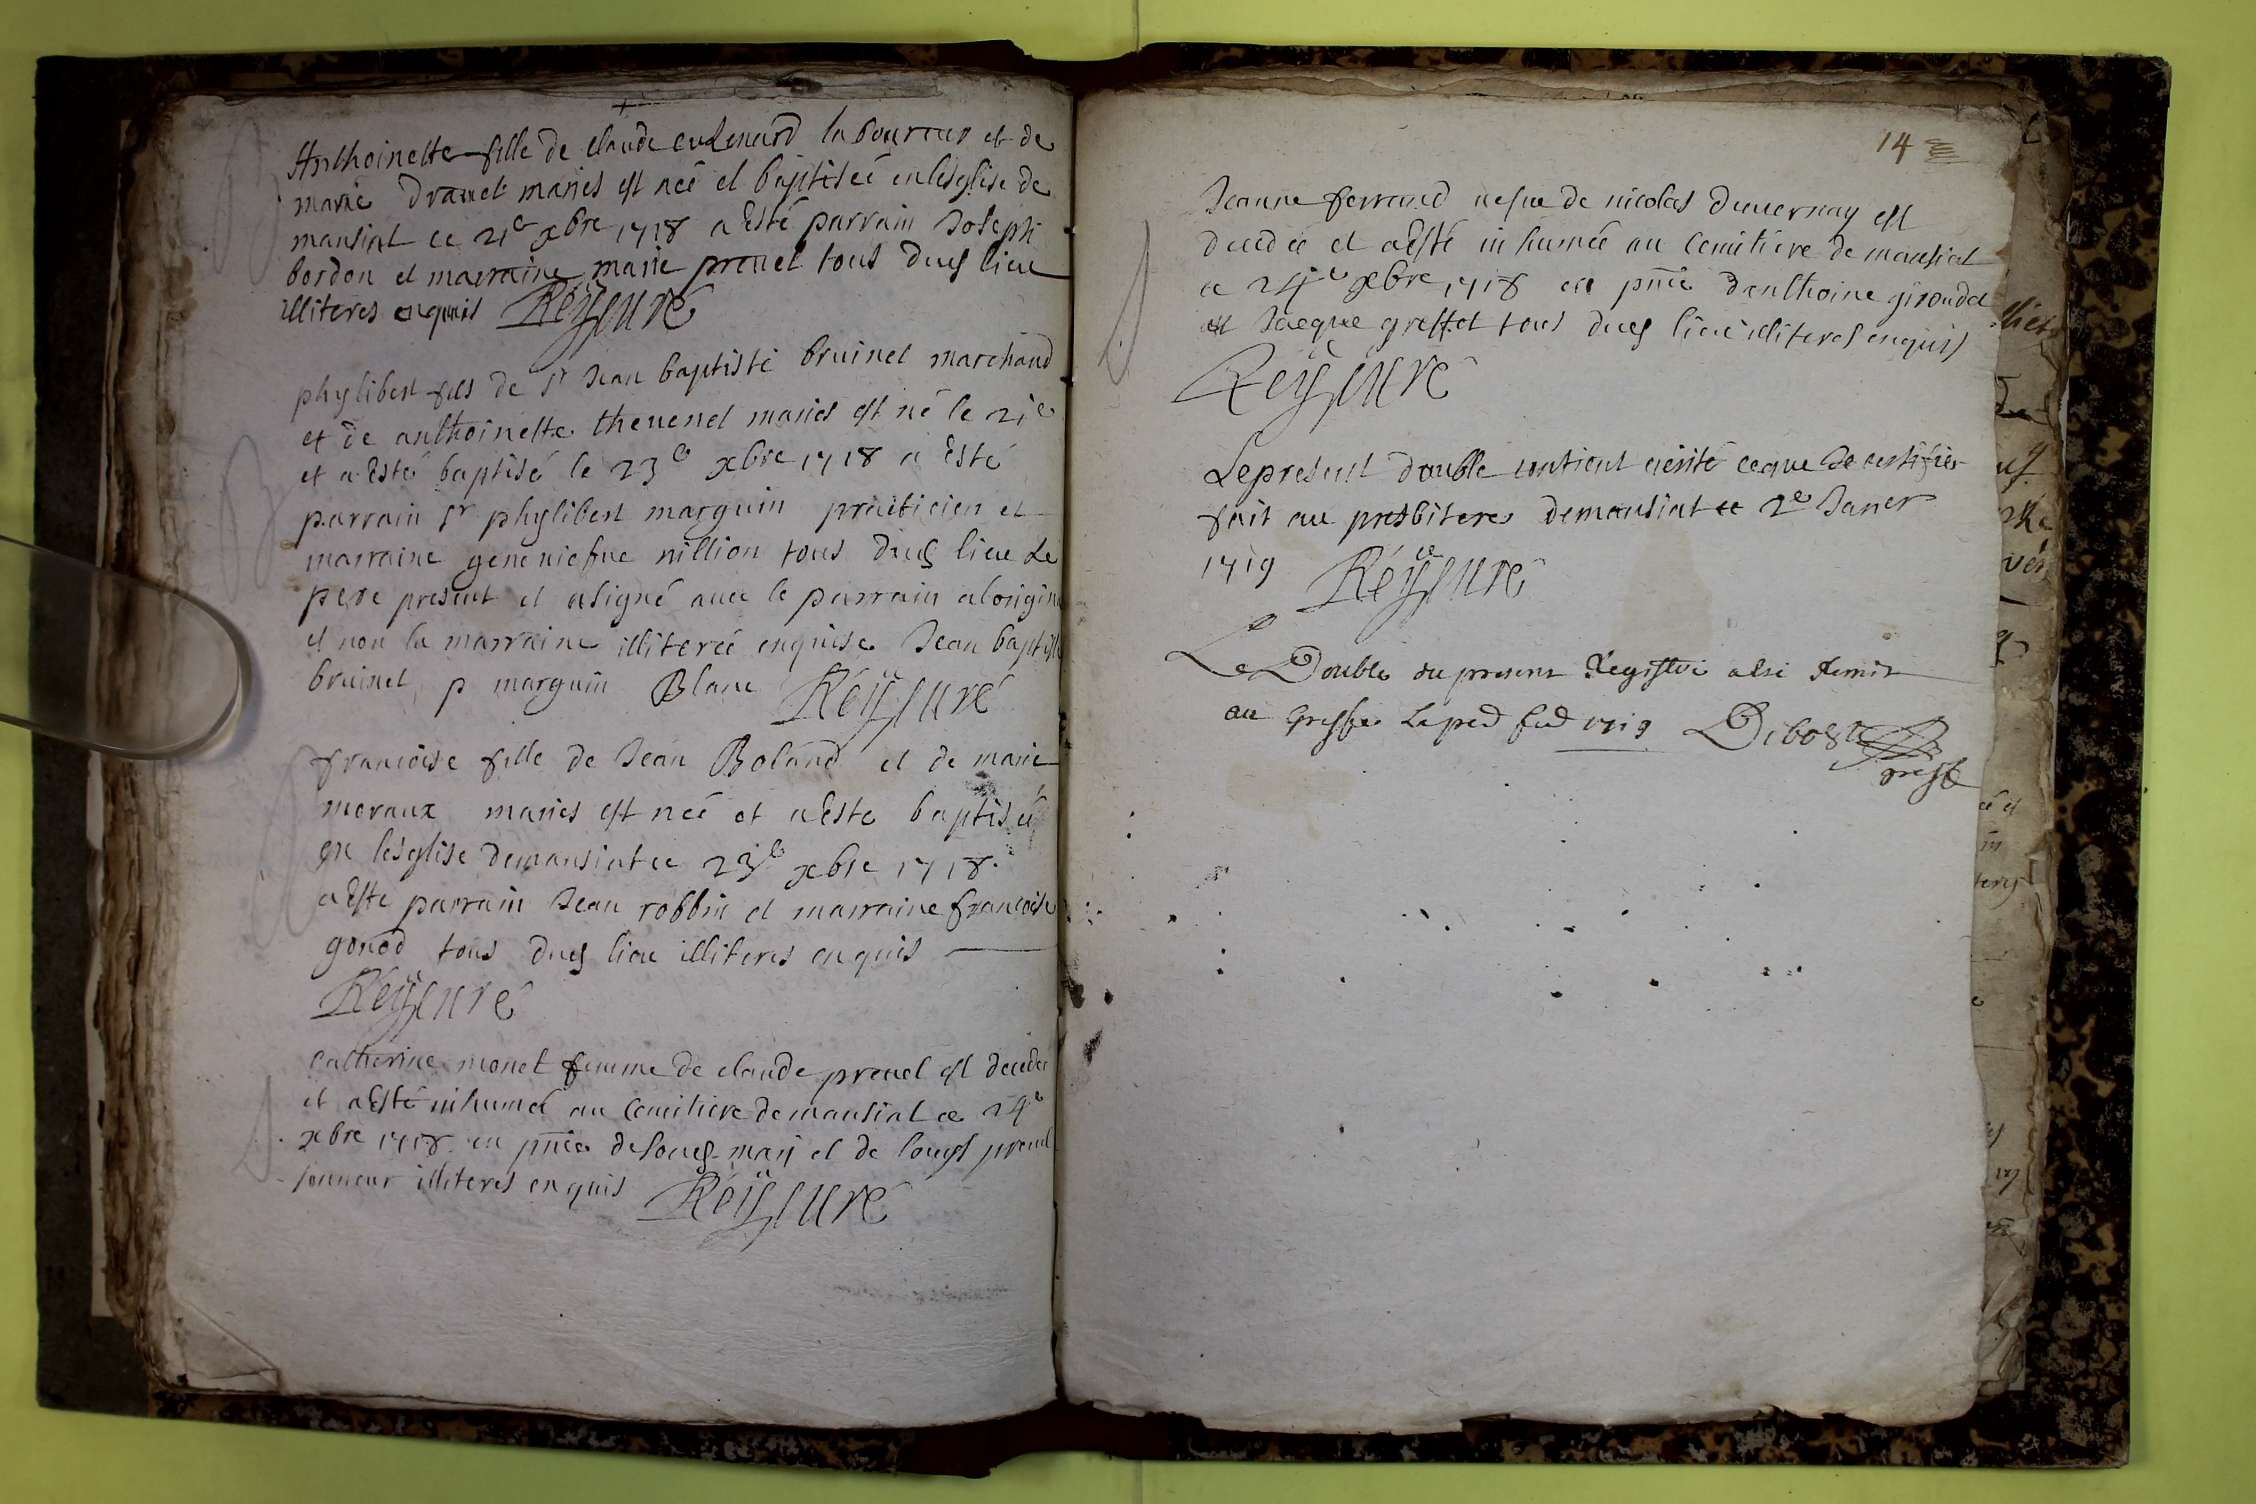 Anthoinette fille de claude euLenard laboureur et de
marie drauet maries est neé et baptiseé en lesglise de
mansiat ce 21e xbre 1718 a Esté parrain Joseph
bordon et marraine marie preuel tous dud lieu
illiteres enquis Réÿ cure
phylibert fils de sr Jean baptiste bruinet marchand
et de anthoinette theuenet maries est né le 21e
et a Esté baptisé le 23e xbre 1718 a Esté
parrain sr phylibert marguin praticien et
marraine geneuiefue nillion tous dud lieu Le
pere present et a signé auec le parrain a lorigin
et non la marraine illitereé enquise Jean baptiste
bruinet p marguin Blanc Réÿ curé
francoise fille de Jean Boland et de marie
moraux maries est neé et a Este baptiseé
en lesglise de mansiat ce 23e xbre 1718.
a Este parrain Jean robbin et marraine francoise
gonod tous dud lieu illiteres enquis
Réÿ curé
Catherine monet femme de claude preuel est decedeé
et a Esté inhumeé au Cemitiere de mansiat ce 24e
xbre 1718 en pnce de soud mary et de louys preuel
sonneur illiteres enquis Réÿ curé
14
Jeanne ferrand uefue de nicolas duuernay est
decedeé et a Esté inhumeé au Cemitiere de mansiat
ce 24e xbre 1718 en pnce danthoine giroudet
et Jacque greffet tous dud lieu illiteres enquis
Réÿ curé
Le present double contient uerité ce que Je certifie
fait au presbitere de mansiat ce 2e Janer
1719 Réÿ curé
Le Double du present Registre a Esté Remis
au Greffe 1719 Debost
greff